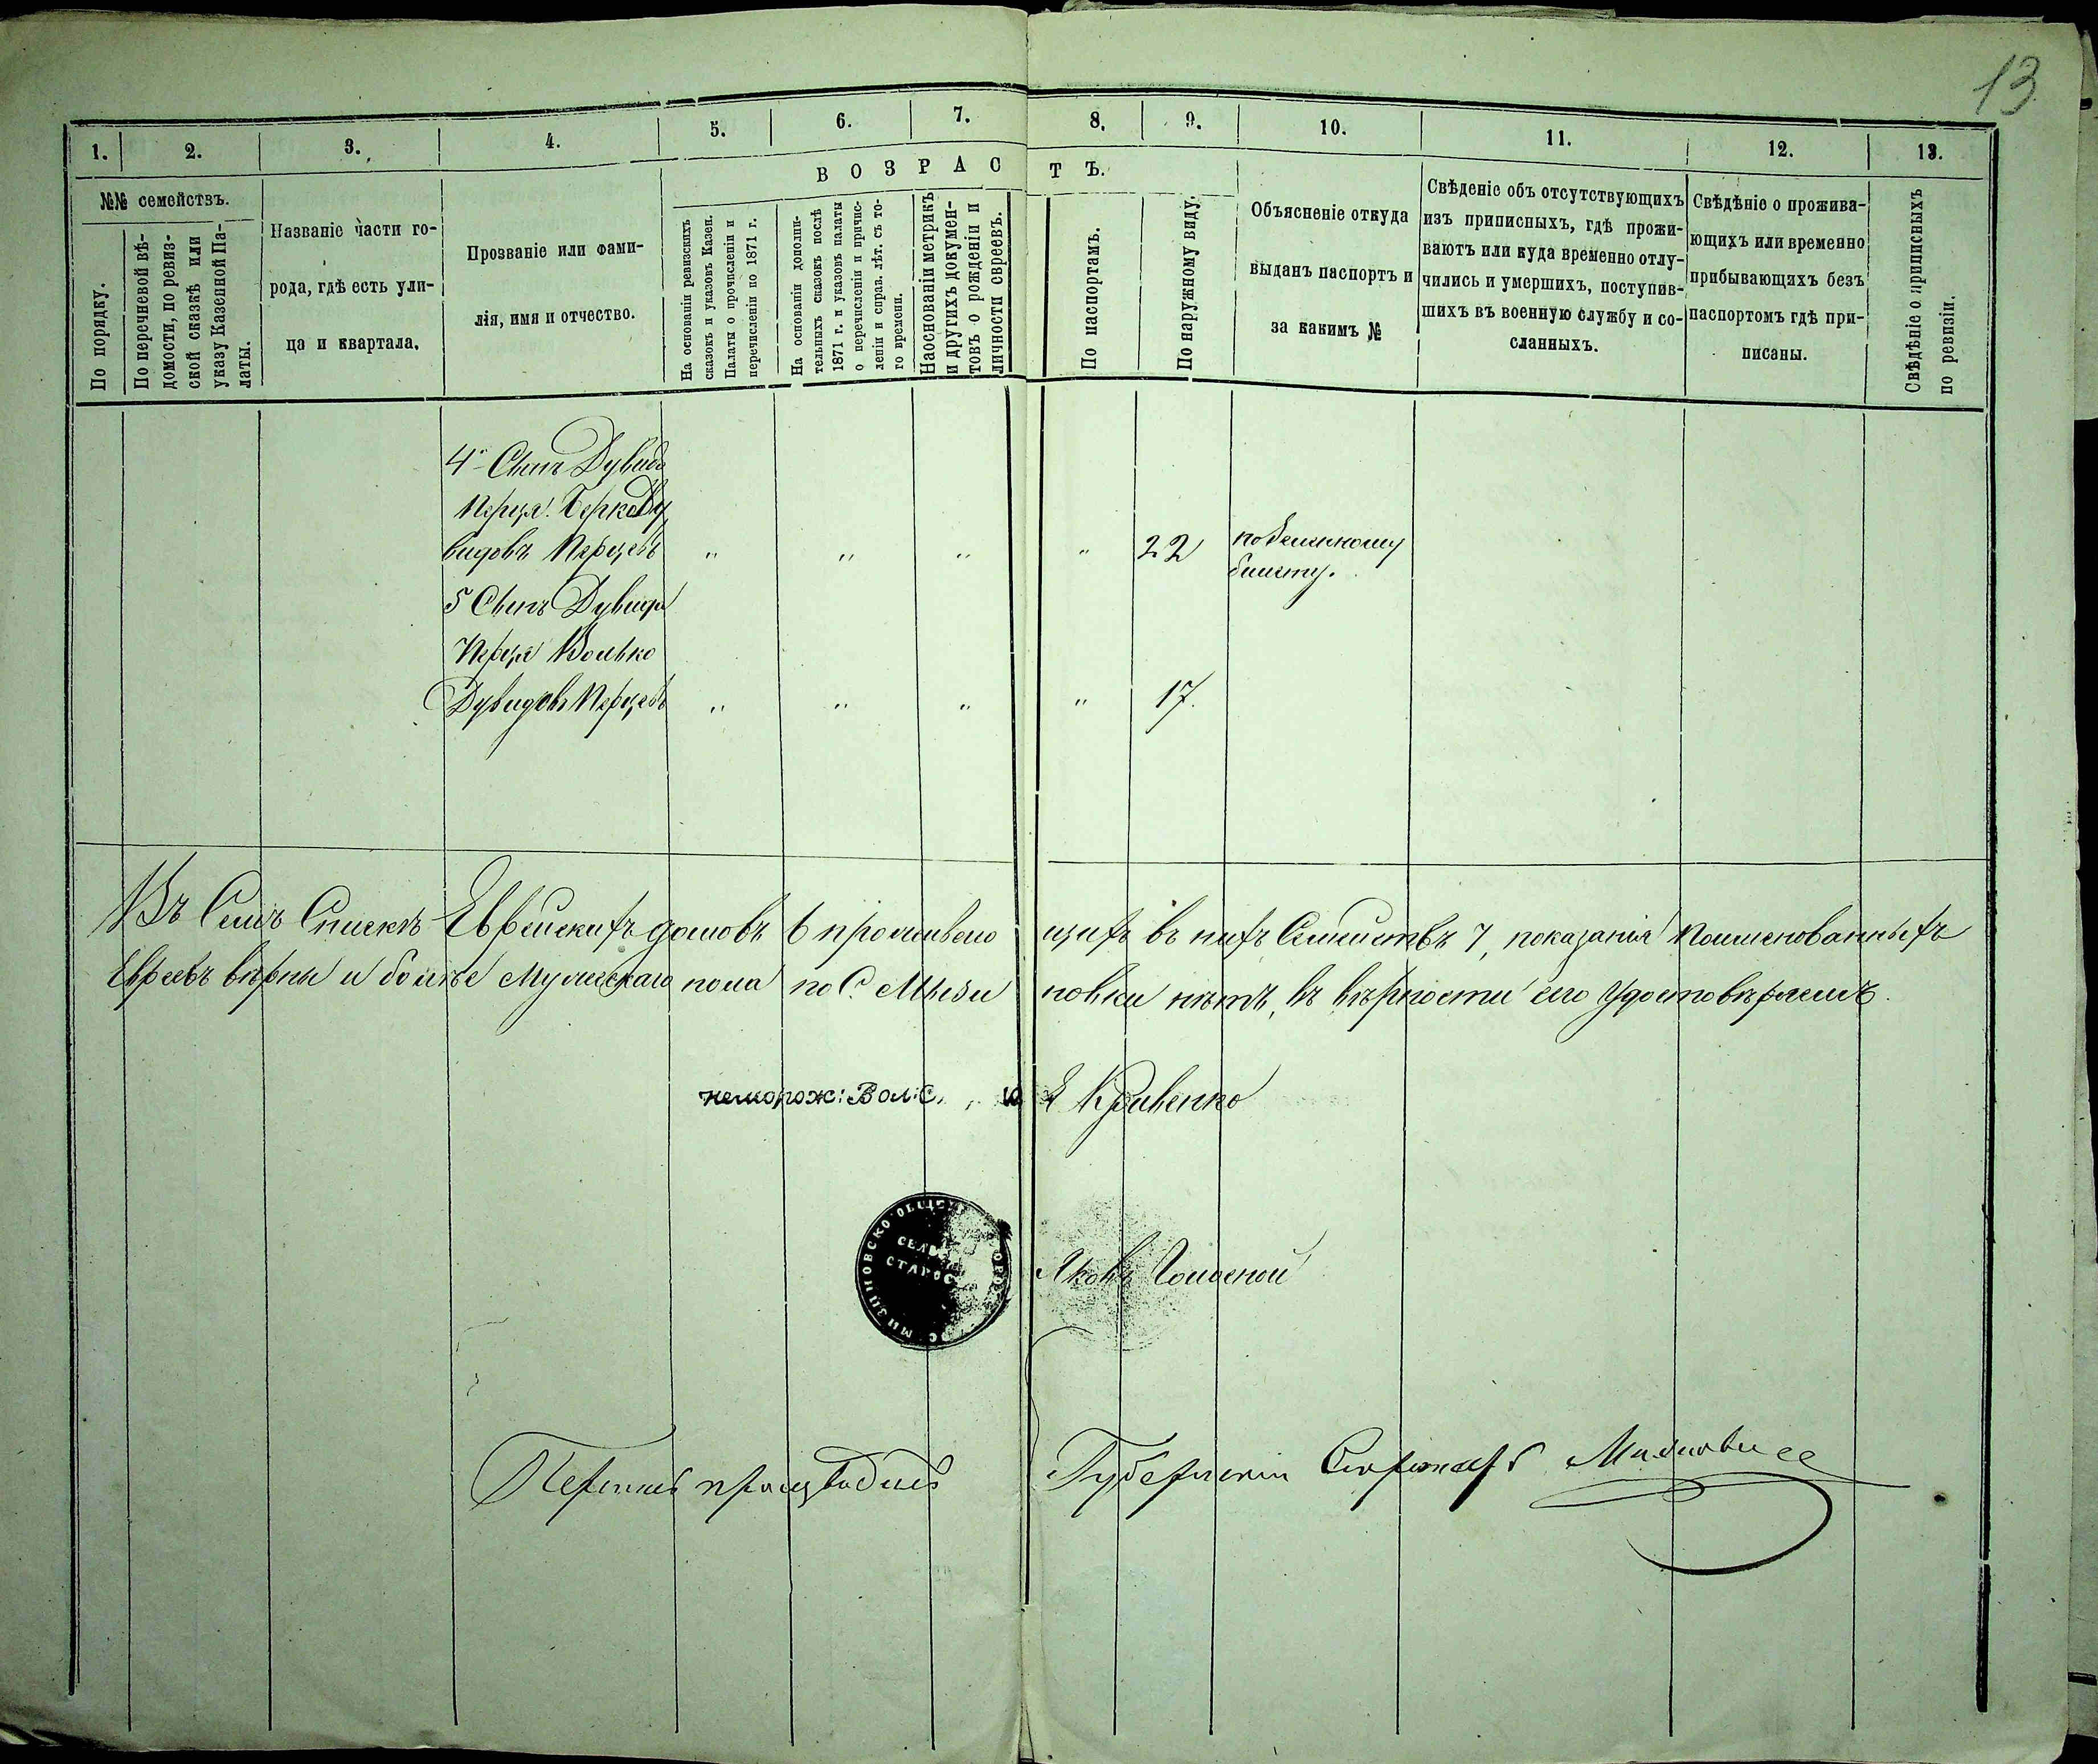 13
1. 2. 3. 4. 5. 6. 7. 8. 9. 10. 11. 12. 13.
ВОЗРАСТЪ.
№№ семействъ.
По порядку.
По перечневой вѣ-
домости, по ревиз-
ской сказкѣ или
указу Казенной Па-
латы.
Названіе части го-
рода, гдѣ есть ули-
ца и квартала.
Прозваніе или фами-
лія, имя и отчество.
На основаніи ревизскихъ
сказокъ и указовъ Казен.
Палаты о прочисленіи и
перечисленіи по 1871 г.
На основаніи дополни-
тельныхъ сказокъ послѣ
1871 г. и указовъ палаты
о перечисленіи и причис-
леніи и справ. лѣт. съ то-
го времени.
На основаніи метрикъ
и другихъ докумен-
товъ о рожденіи и
личности евреевъ.
По паспортамъ.
По наружному виду.
Объясненіе откуда
выданъ паспортъ и
за какимъ №
Свѣденіе объ отсутствующихъ
изъ приписныхъ, гдѣ прожи-
ваютъ или куда временно отлу-
чились и умершихъ, поступив-
шихъ въ военную службу и со-
сланныхъ.
Свѣдѣніе о прожива-
ющихъ или временно
прибывающихъ безъ
паспортомъ гдѣ при-
писаны.
Свѣдѣніе о приписныхъ
по ревизіи.
4й Сынъ Дувида
Перця Беркο Ду
видовъ Перцевъ " " " " 22 по
билету.
5 Сынъ Дувида
Перця Волько
Дувидовъ Перцевъ " " " " 17.
Въ Семъ Спискѣ Еврейскихъ домовъ 6 проживаю щихъ въ нихъ Семействъ 7, показанія Поименованныхъ
Евреевъ вѣрны и болѣе Мужескаго пола по С. Мызи новки нѣтъ, въ вѣрности сего Удостовѣряемъ.
Кривенко
СЕЛЬ
СТАРОС
Яковъ
Губернскій Секретарь